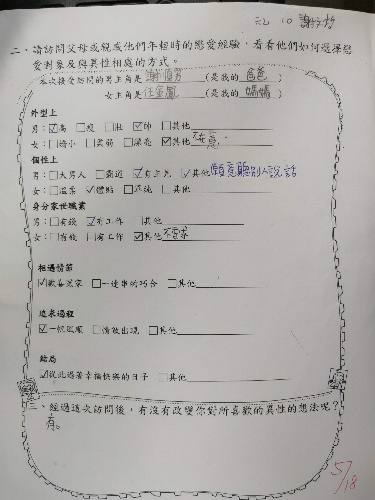 二、請訪問父母或親戚他們年輕時的戀愛經驗，看看他們如何選擇戀
愛對象及與異性相處的方式。
本次接受訪問的男主角是 (是我的爸爸)
女主角是 (是我的媽媽)
外型上
男：☑高 □瘦 □壯 ☑帥 □其他
女：□嬌小 □柔弱 □漂亮 ☑其他不在意
個性上
男：□大男人 □霸道 ☑有主見 ☑其他願意聽別人說話
女：□溫柔 ☑體貼 □正統 □其他
身分家世職業
男：□有錢 ☑有工作 □其他
女：□有錢 □有工作 ☑其他不需要
相遇情節
☑歡喜冤家 □一連串的巧合 □其他
追求過程
☑一帆風順 □情敵出現 □其他
結局
☑從此過著幸福快樂的日子 □其他
三、經過這次訪問後，有沒有改變你對所喜歡的異性的想法呢？
有。
5/18